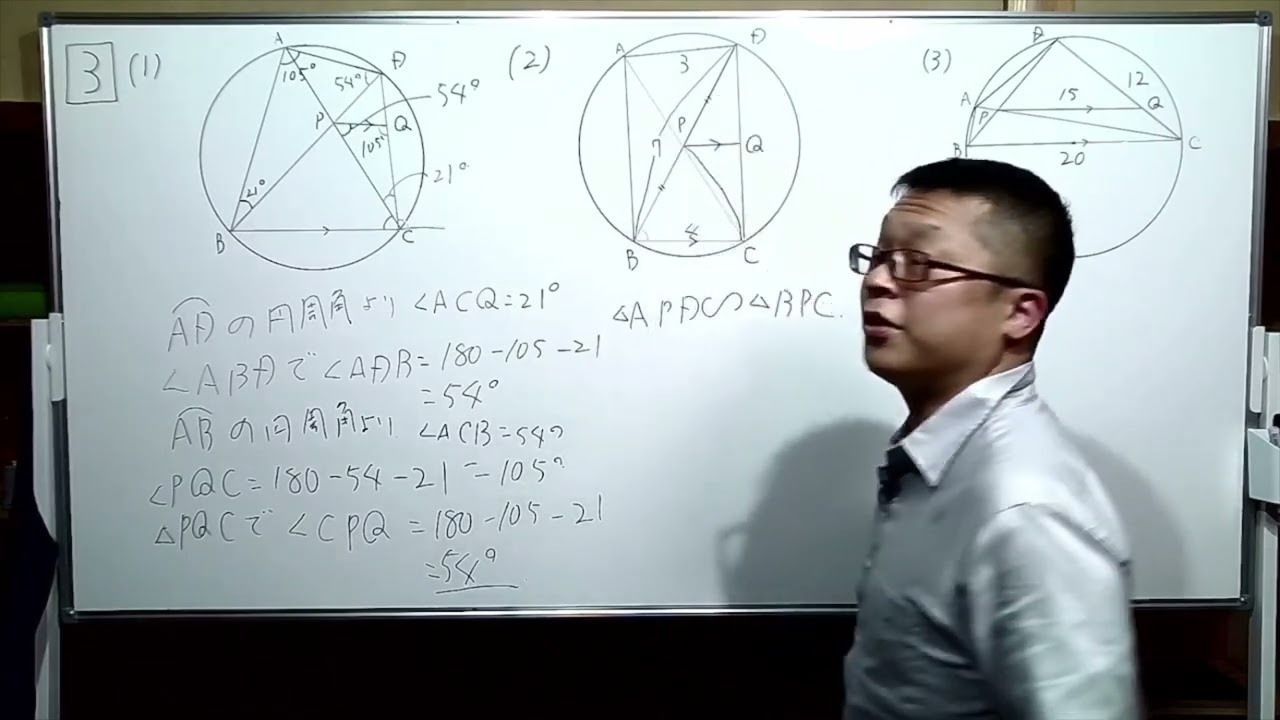 3 (1)
A
105°
54°
D
54°
P
Q
105°
21°
21°
B
C
(2)
A
D
3
P
7
Q
4
B
C
(3)
D
12
A
15
Q
P
B
20
C
ADの円周角より ∠ACQ=21°
∠ABDで ∠ADB=180-105-21
=54°
ABの円周角より ∠ACB=54°
∠PQC=180-54-21=105°
△PQCで ∠CPQ=180-105-21
=54°
△APD∽△BPC.